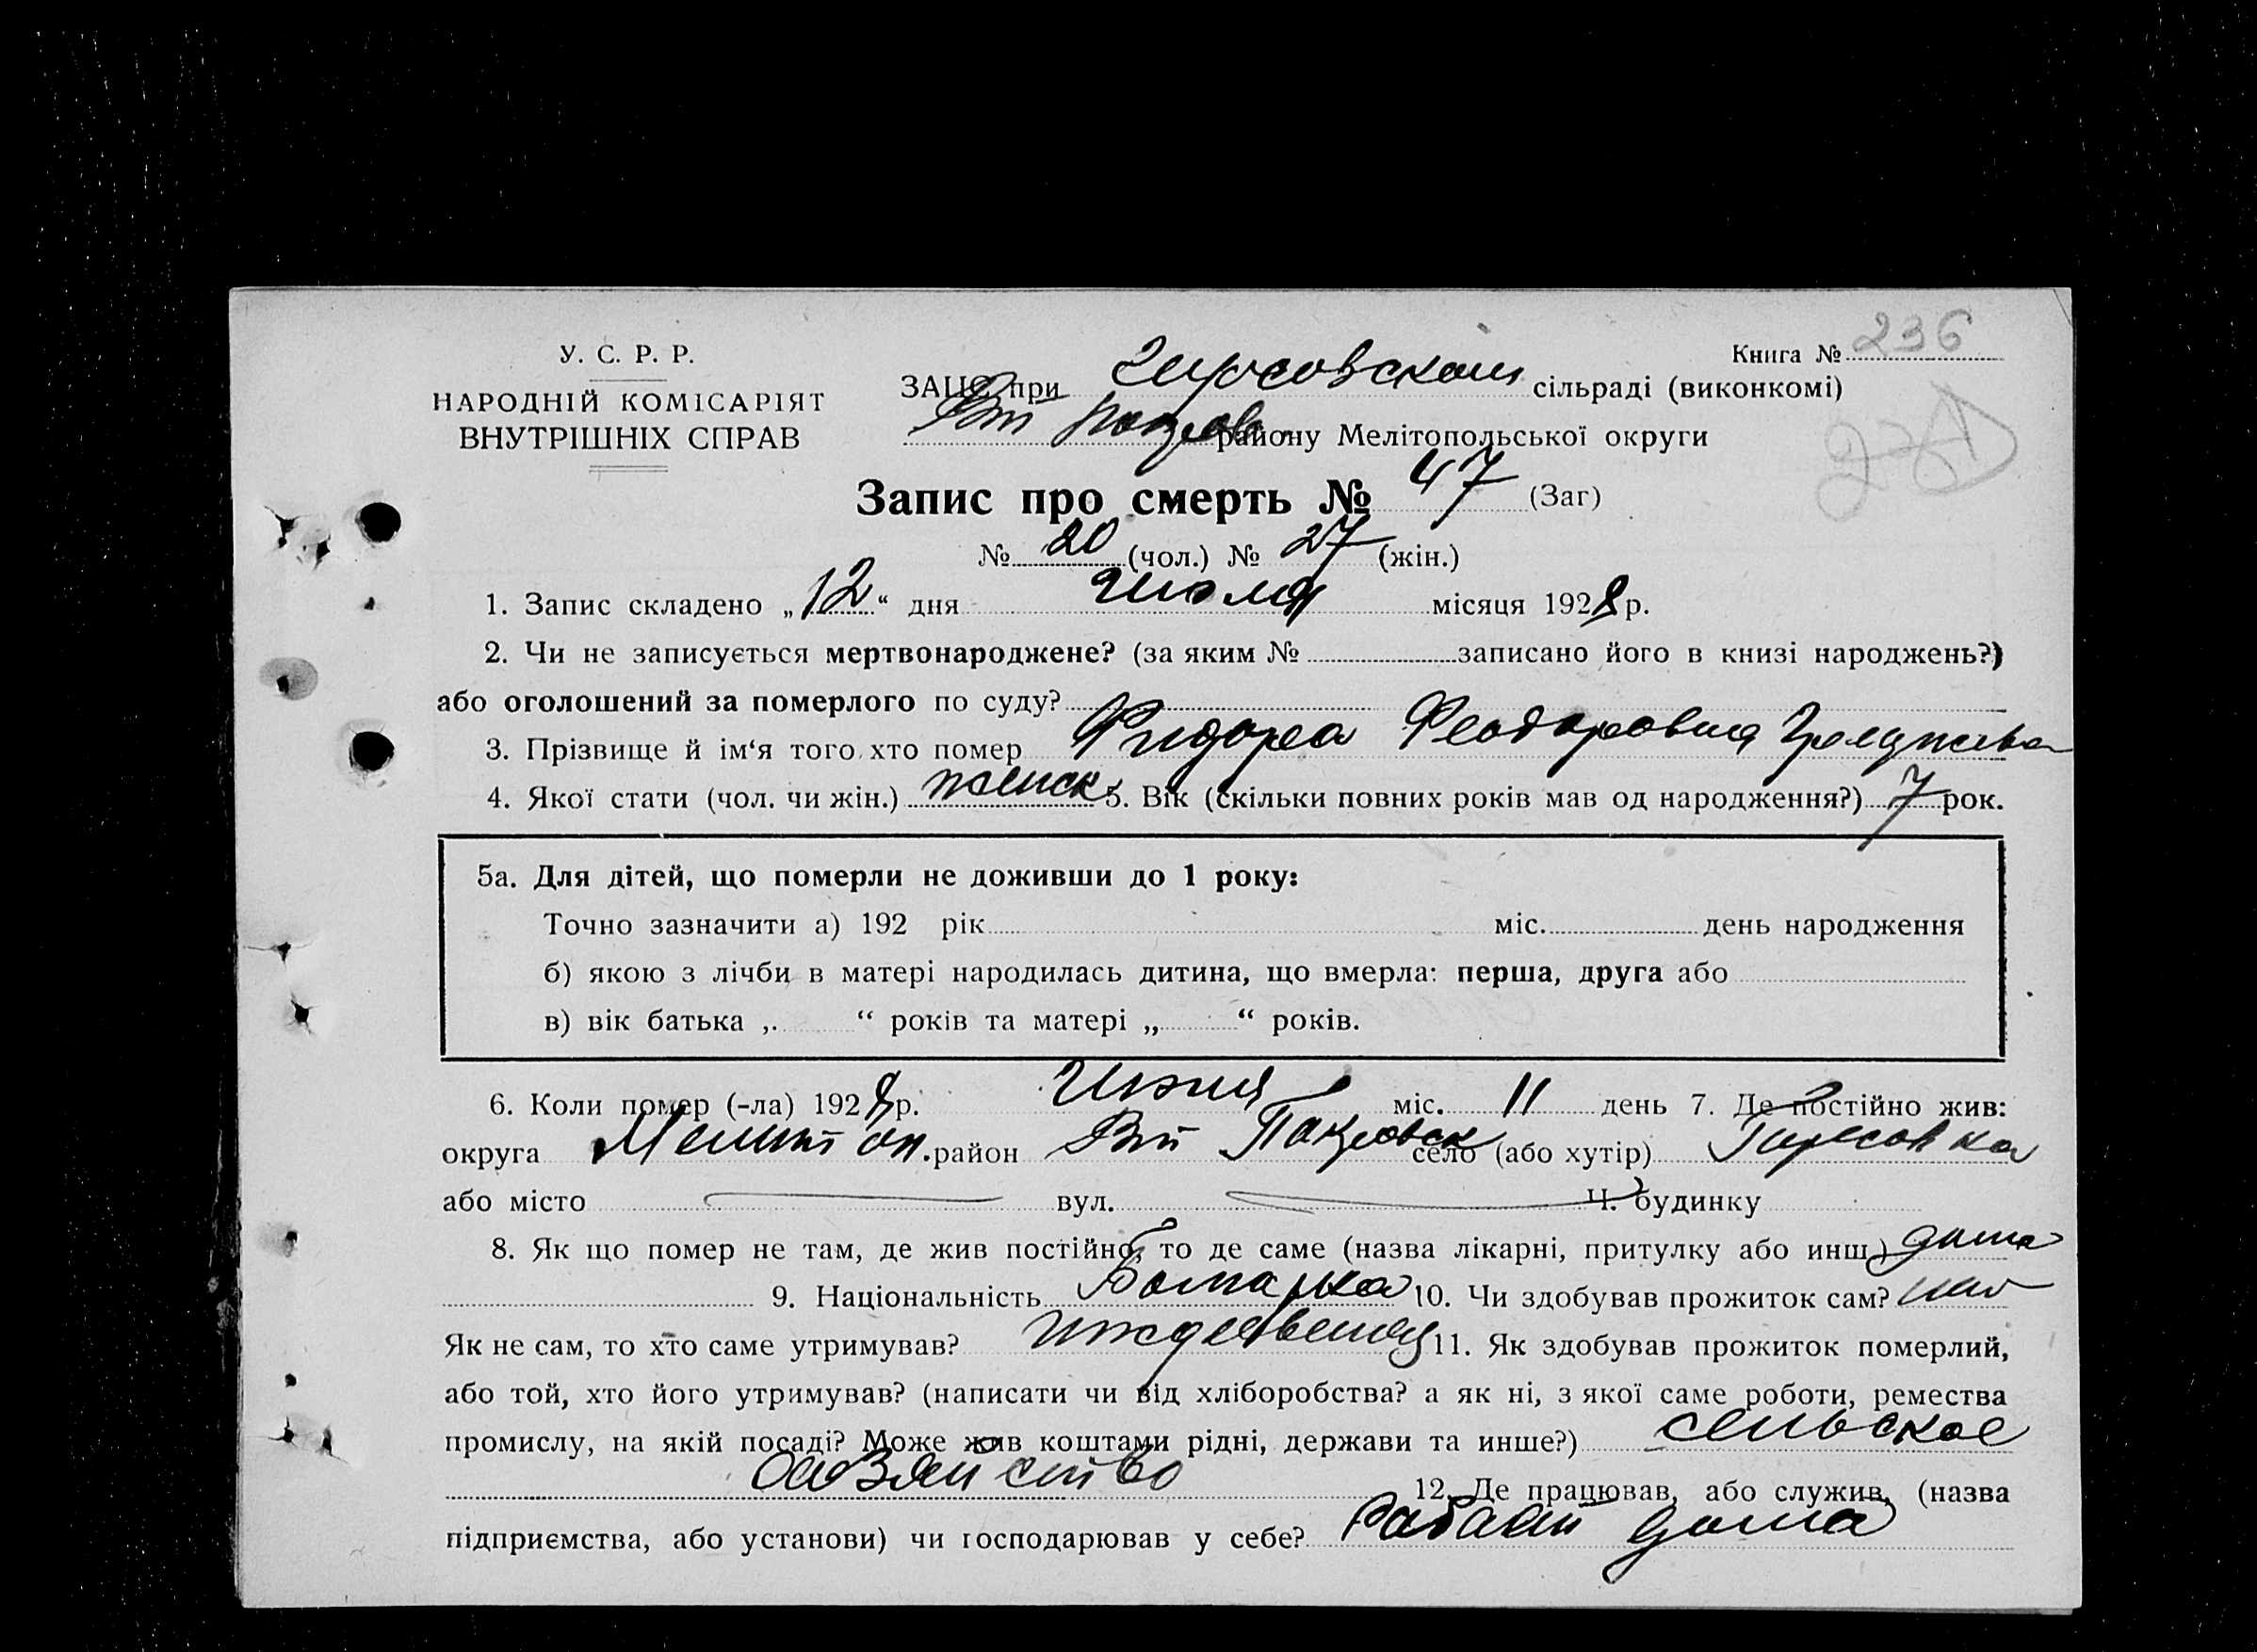 У. С. Р. Р.
НАРОДНІЙ КОМІСАРІЯТ
ВНУТРІШНІХ СПРАВ
Книга № 236
ЗАЦС при Гирсовском сільраді (виконкомі)
району Мелітопольської округи
Запис про смерть № 47 (Заг)
№ 20 (чол.) № 27 (жін.)
1. Запис складено „ 12 “ дня Июля місяця 1928 р.
2. Чи не записується мертвонароджене? (за яким № записано його в книзі народжень?)
або оголошений за померлого по суду?
3. Прізвище й ім‘я того, хто помер Феодоровна
4. Якої стати (чол. чи жін.) женск 5. Вік (скільки повних років мав од народження?) 7 рок.
5а. Для дітей, що померли не доживши до 1 року:
Точно зазначити а) 192 рік міс. день народження
б) якою з лічби в матері народилась дитина, що вмерла: перша, друга або
в) вік батька „ “ років та матері „ “ років.
6. Коли помер (-ла) 1928 р. Июля міс. 11 день 7. Де постійно жив:
округа Мелитоп. район Покровск село (або хутір) Гирсовка
або місто вул. Ч. будинку
8. Як що помер не там, де жив постійно, то де саме (назва лікарні, притулку або инш.) дома
9. Національність Болгарка 10. Чи здобував прожиток сам? нет
Як не сам, то хто саме утримував? иждевения 11. Як здобував прожиток померлий,
або той, хто його утримував? (написати чи від хліборобства? а як ні, з якої саме роботи, ремества
промислу, на якій посаді? Може жив коштами рідні, держави та инше?) сельское
12. Де працював, або служив, (назва
підприємства, або установи) чи господарював у себе? дома